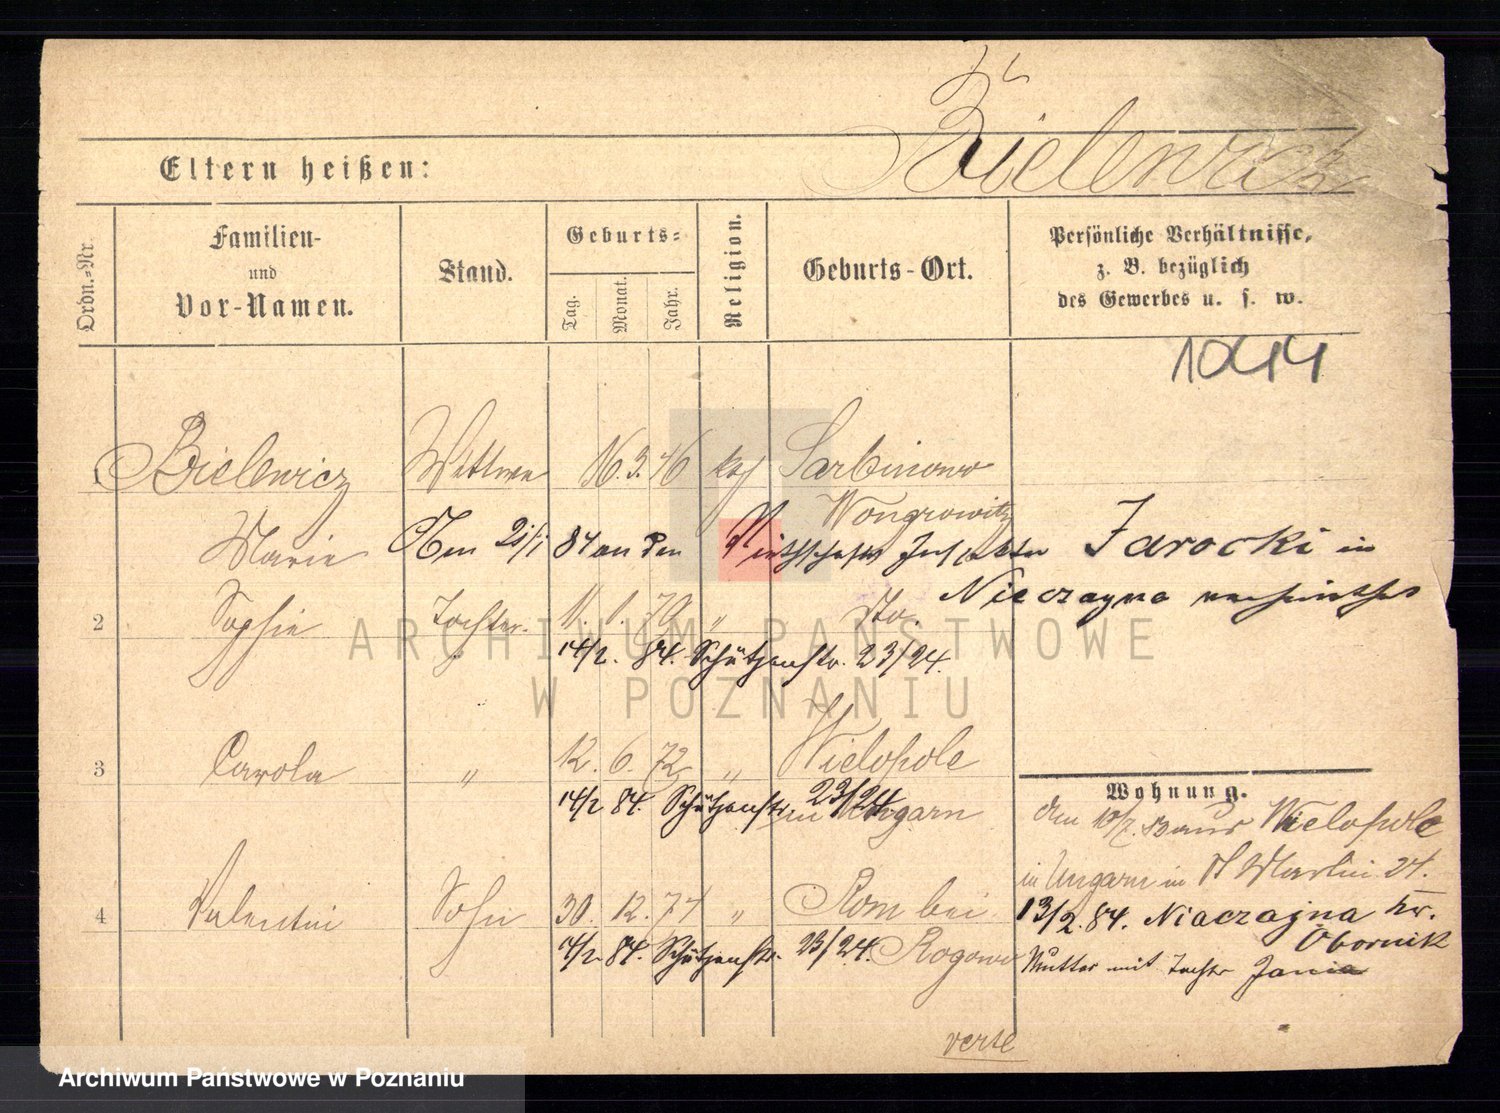 Bielewicz
Eltern heißen:
Ordn.-Nr.
Familien-
und
Vor-Namen.
Stand.
Geburts-
Tag.
Monat.
Jahr.
Religion.
Geburts-Ort.
Persönliche Verhältnisse,
z. B. bezüglich
des Gewerbes u. s. w.
1044
1 Bielewicz Wittwe 16. 3. 46 kath Sarbinowo
Wongrowitz
Marie Am 21/1 84 an den Wirthschafts Inspektor Jarocki in
Nieczayna verheirathet
2 Sophie Tochter 11. 1. 70 " do.
14/2. 84. Schützenstr. 23/24.
3 Carola " 12. 6. 72 " Wielopole
14/2 84. Schützenstr. 23/24
in Ungarn
4 Valentin Sohn 30. 12. 74 " Rom bei
14/2. 84. Schützenstr. 23/24. Rogowo
Wohnung.
den 10/7. 83 aus Wielopole
in Ungarn in St Martin 27.
13/2. 84. Niaczajna kr.
Obornik
Mutter mit Tochter Jania
verte
ARCHIWUM PAŃSTWOWE
W POZNANIU
Archiwum Państwowe w Poznaniu